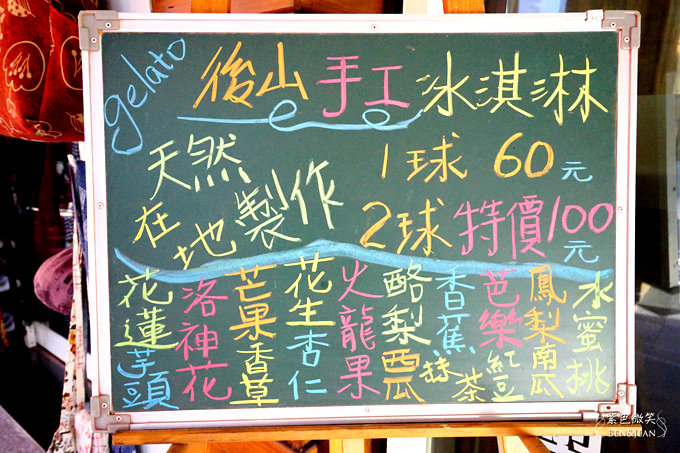 gelato
後山手工冰淇淋
天然
在地製作
1球 60元
2球特價100元
水蜜桃
鳳梨南瓜
芭樂紅豆
香蕉抹茶
酪梨西瓜
火龍果
花生杏仁
芒果香草
洛神花
花蓮芋頭
紫色微笑
BEN&JEAN